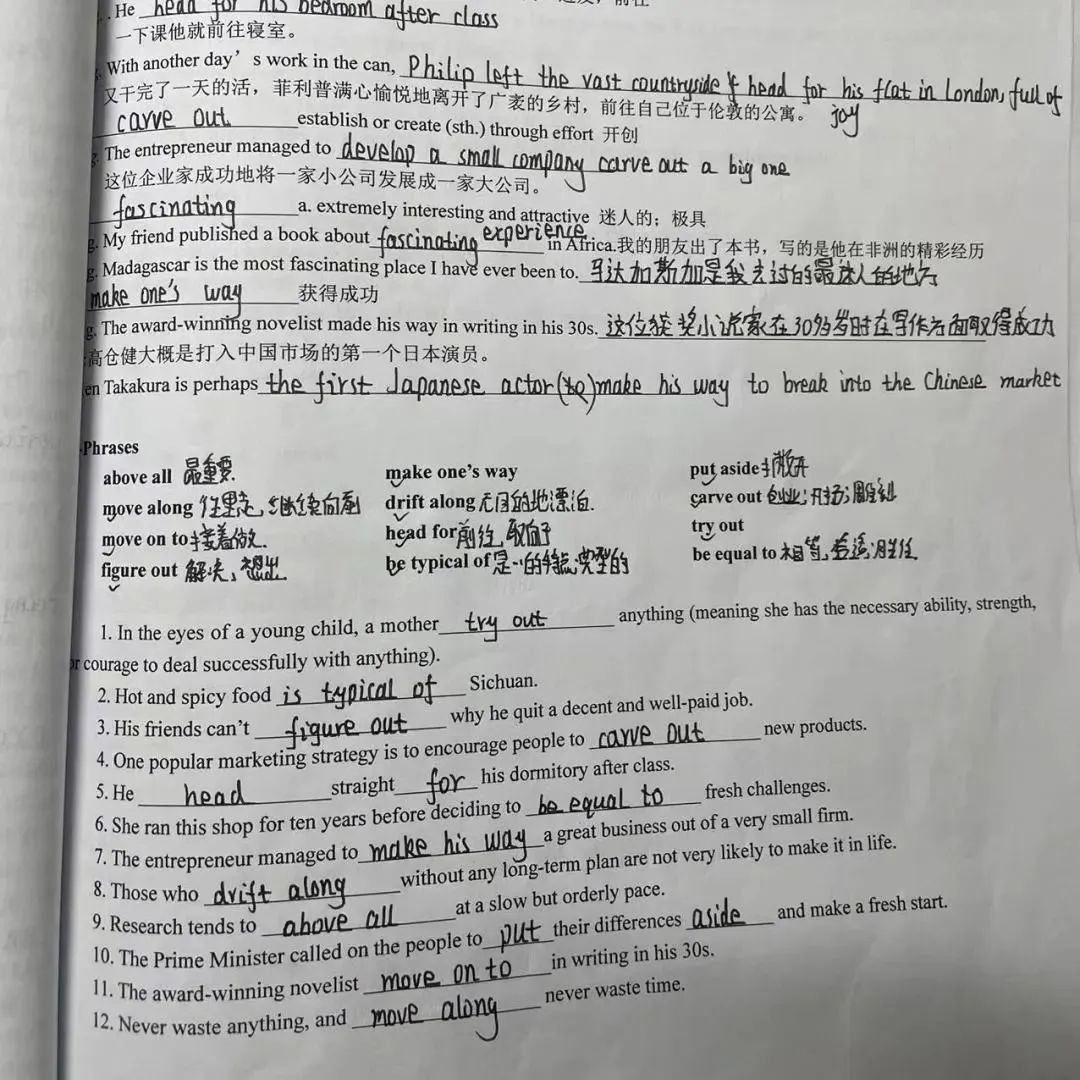 He head for his bedroom after class
一下课他就前往寝室。
With another day's work in the can, Philip left the vast countryside & head for his flat in London, full of joy
又干完了一天的活，菲利普满心愉悦地离开了广袤的乡村，前往自己位于伦敦的公寓。
carve out establish or create (sth.) through effort 开创
The entrepreneur managed to develop a small company carve out a big one
这位企业家成功地将一家小公司发展成一家大公司。
fascinating a. extremely interesting and attractive 迷人的；极具
g. My friend published a book about fascinating experience in Africa.我的朋友出了本书，写的是他在非洲的精彩经历
g. Madagascar is the most fascinating place I have ever been to. 马达加斯加是我去过的最迷人的地方
make one's way 获得成功
g. The award-winning novelist made his way in writing in his 30s. 这位获奖小说家在30多岁时在写作方面取得成功
高仓健大概是打入中国市场的第一个日本演员。
en Takakura is perhaps the first Japanese actor (to) make his way to break into the Chinese market
Phrases
above all 最重要. make one's way put aside 撇开
move along 往里走，继续向前 drift along 无目的地漂泊. carve out 创业；开拓；雕刻
move on to 接着做. head for 前往，取向于 try out
figure out 解决，想出 be typical of 是…的特点，典型的 be equal to 相等，合适；胜任
1. In the eyes of a young child, a mother try out anything (meaning she has the necessary ability, strength,
or courage to deal successfully with anything).
2. Hot and spicy food is typical of Sichuan.
3. His friends can't figure out why he quit a decent and well-paid job.
4. One popular marketing strategy is to encourage people to carve out new products.
5. He head straight for his dormitory after class.
6. She ran this shop for ten years before deciding to be equal to fresh challenges.
7. The entrepreneur managed to make his way a great business out of a very small firm.
8. Those who drift along without any long-term plan are not very likely to make it in life.
9. Research tends to above all at a slow but orderly pace.
10. The Prime Minister called on the people to put their differences aside and make a fresh start.
11. The award-winning novelist move on to in writing in his 30s.
12. Never waste anything, and move along never waste time.